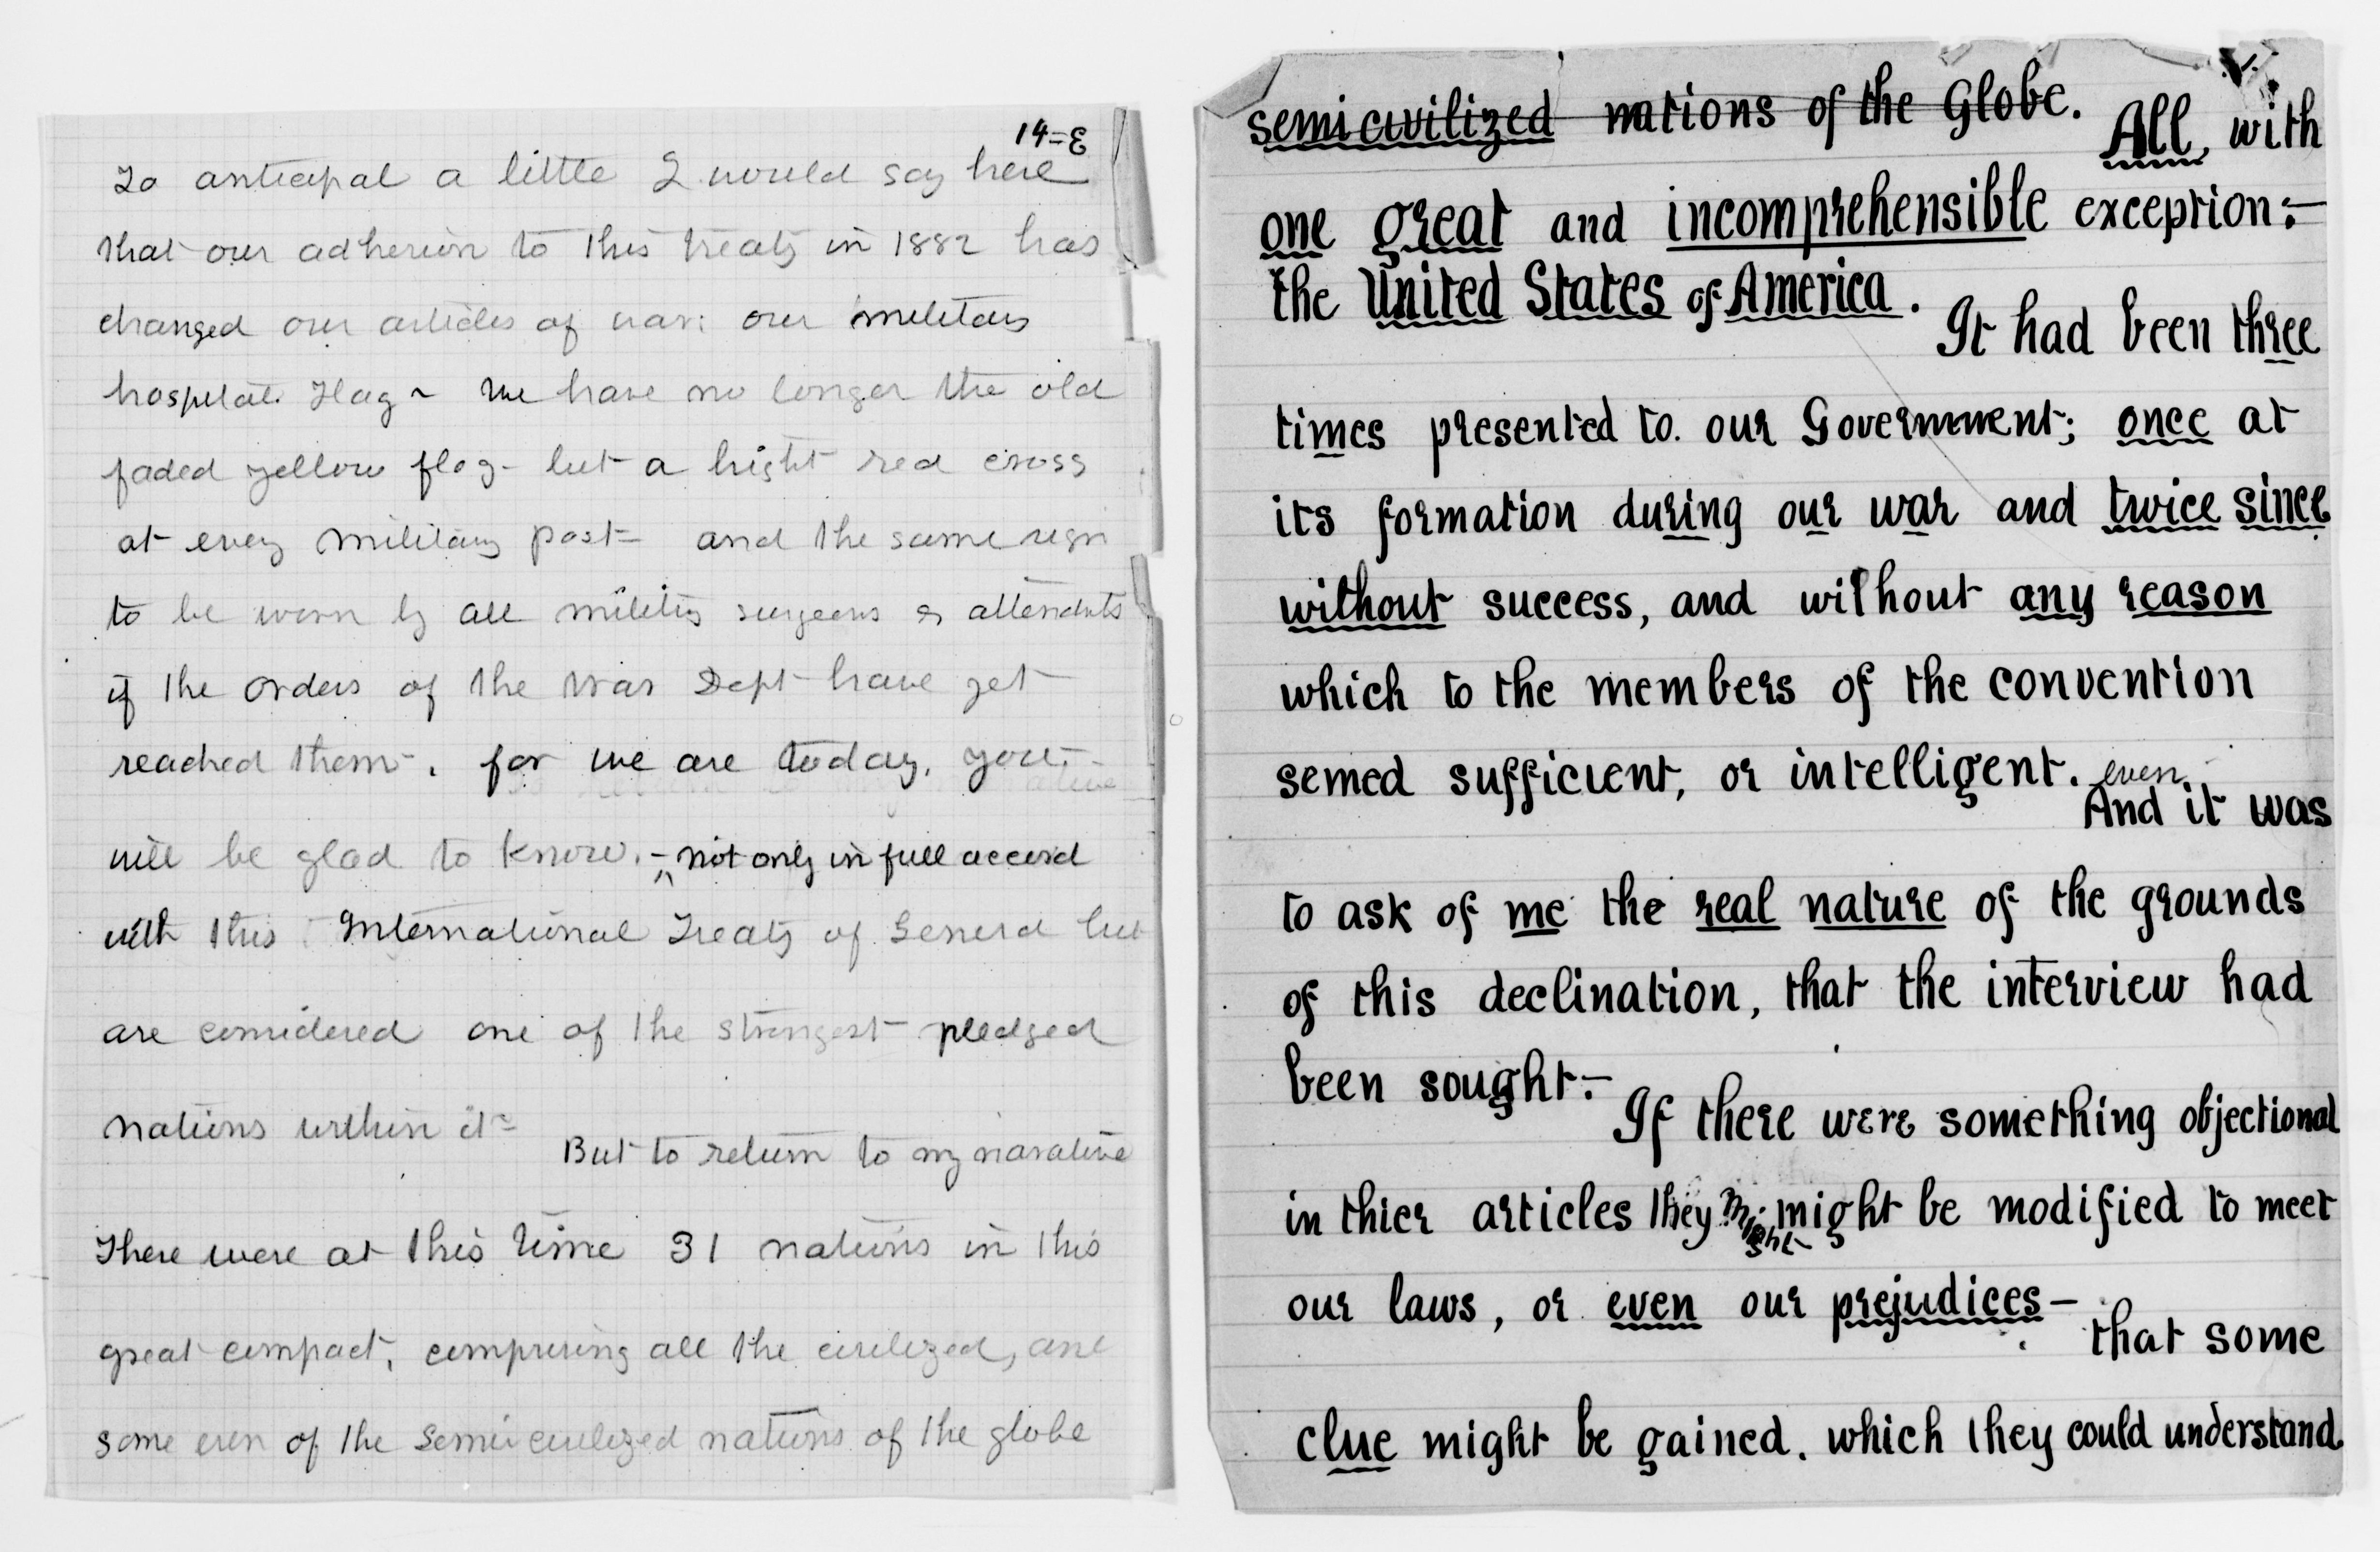 14=E
To anticipat a little I would say here
that our adherion to this treaty in 1882 has
changed our articles of war: our military
hospital Flag ~ We have no longer the old
faded yellow flag - but a bright red cross
at every military post = and the same sign
to be worn by all military surgeons & attendants
if the orders of the War Dept have yet
reached them -. for we are today, you
will be glad to know. - not only in full accord
with this International Treaty of Geneva but
are considered one of the strongest pledged
nations within it =
But to return to my narative
There were at this time 31 nations in this
great compact, comprising all the civilized, and
some even of the semi civilized nations of the globe
semi civilized nations of the Globe.
All, with
one great and incomprehensible exception:-
the United States of America.
It had been three
times presented to. our Government; once at
its formation during our war and twice since
without success, and without any reason
which to the members of the convention
semed sufficient, or intelligent.
even
And it was
to ask of me the real nature of the grounds
of this declination, that the interview had
been sought:-
If there were something objectional
in thier articles they might might be modified to meet
our laws, or even our prejudices -
that some
clue might be gained. which they could understand